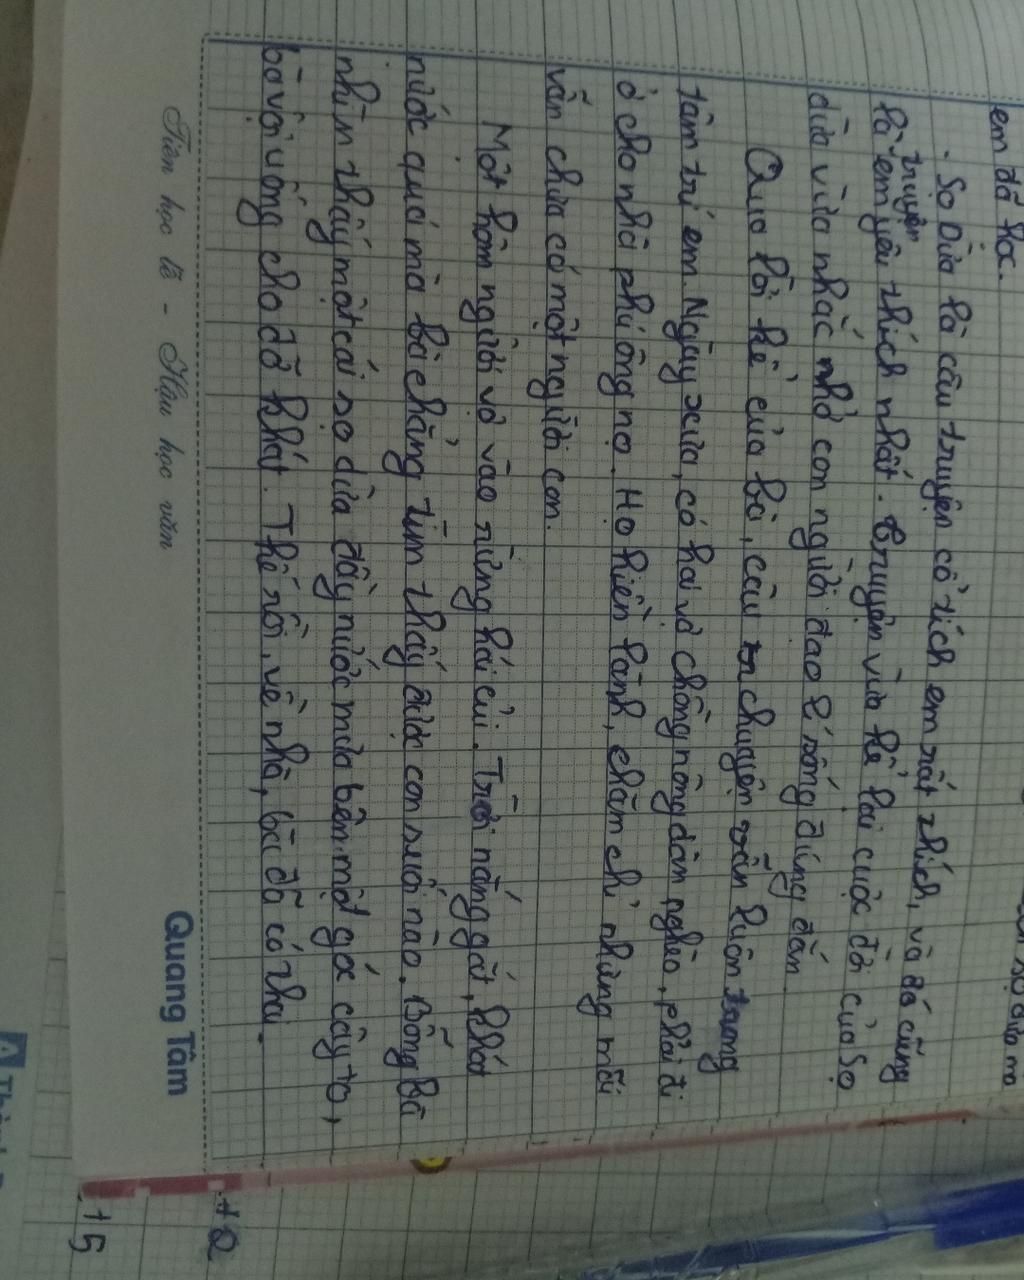 em đã học.
. Sọ Dừa là câu truyện cổ tích em rất thích, và đó cũng
là truyện em yêu thích nhất. Truyện vừa kể lại cuộc đời của Sọ
dừa vừa nhắc nhở con người đạo lí sống đúng đắn.
Qua lời kể của bà, câu chuyện vẫn luôn trong
tâm trí em. Ngày xưa, có hai vợ chồng nông dân nghèo, phải đi
ở cho nhà phú ông nọ. Họ hiền lành, chăm chỉ nhưng mãi
vẫn chưa có một người con.
Một hôm người vợ vào rừng hái củi. Trời nắng gắt, khát
nước quá mà bà chẳng tìm thấy được con suối nào. Bỗng bà
nhìn thấy một cái sọ dừa đầy nước mưa bên một gốc cây to,
bà vội uống cho đỡ khát. Thế rồi, về nhà, bà đã có thai.
Tiên học lễ - Hậu học văn
Quang Tâm
+2
+5